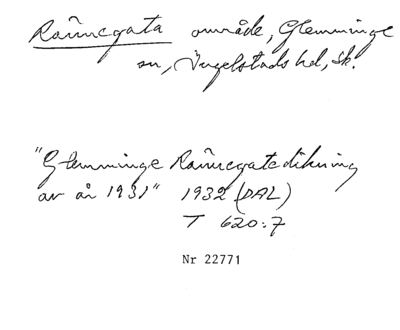 Rännegata område, Glemminge
sn, Ingelstads hd, Sk.
"Glemminge Rännegatedikning
av år 1931" 1932 (DAL)
T 620:7
Nr 22771